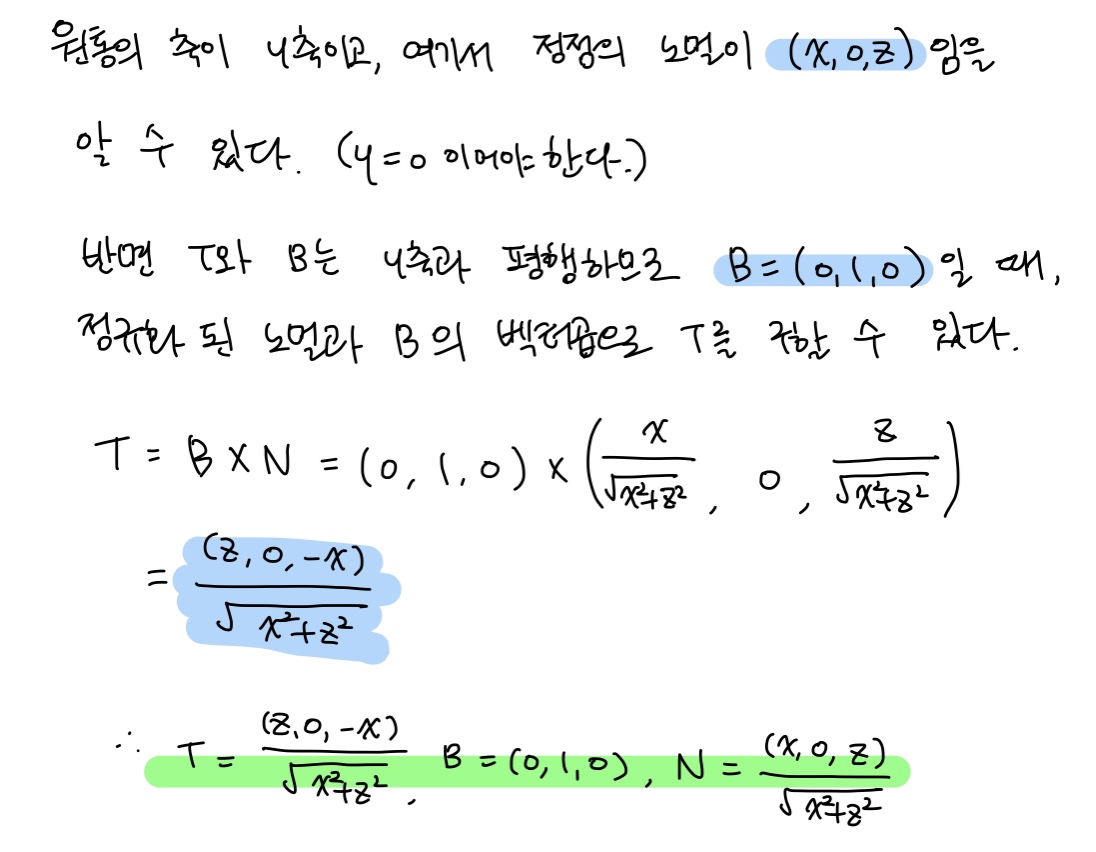 원통의 축이 y축이고, 여기서 정점의 노멀이 (x, 0, z) 임을
알 수 있다. (y = 0 이어야 한다.)
반면 T와 B는 y축과 평행하므로 B = (0, 1, 0) 일 때,
정규화 된 노멀과 B의 벡터곱으로 T를 구할 수 있다.
T = B × N = (0, 1, 0) × (x/√(x²+z²), 0, z/√(x²+z²))
= (z, 0, -x)/√(x²+z²)
∴ T = (z, 0, -x)/√(x²+z²), B = (0, 1, 0), N = (x, 0, z)/√(x²+z²)